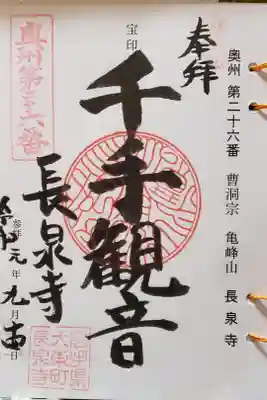 奥州 第二十六番 曹洞宗 亀峰山 長泉寺
奉拝
宝印
千手観音
長泉寺
奥州第二十六番
参拝 令和元年九月 日
岩手県
大東町
長泉寺